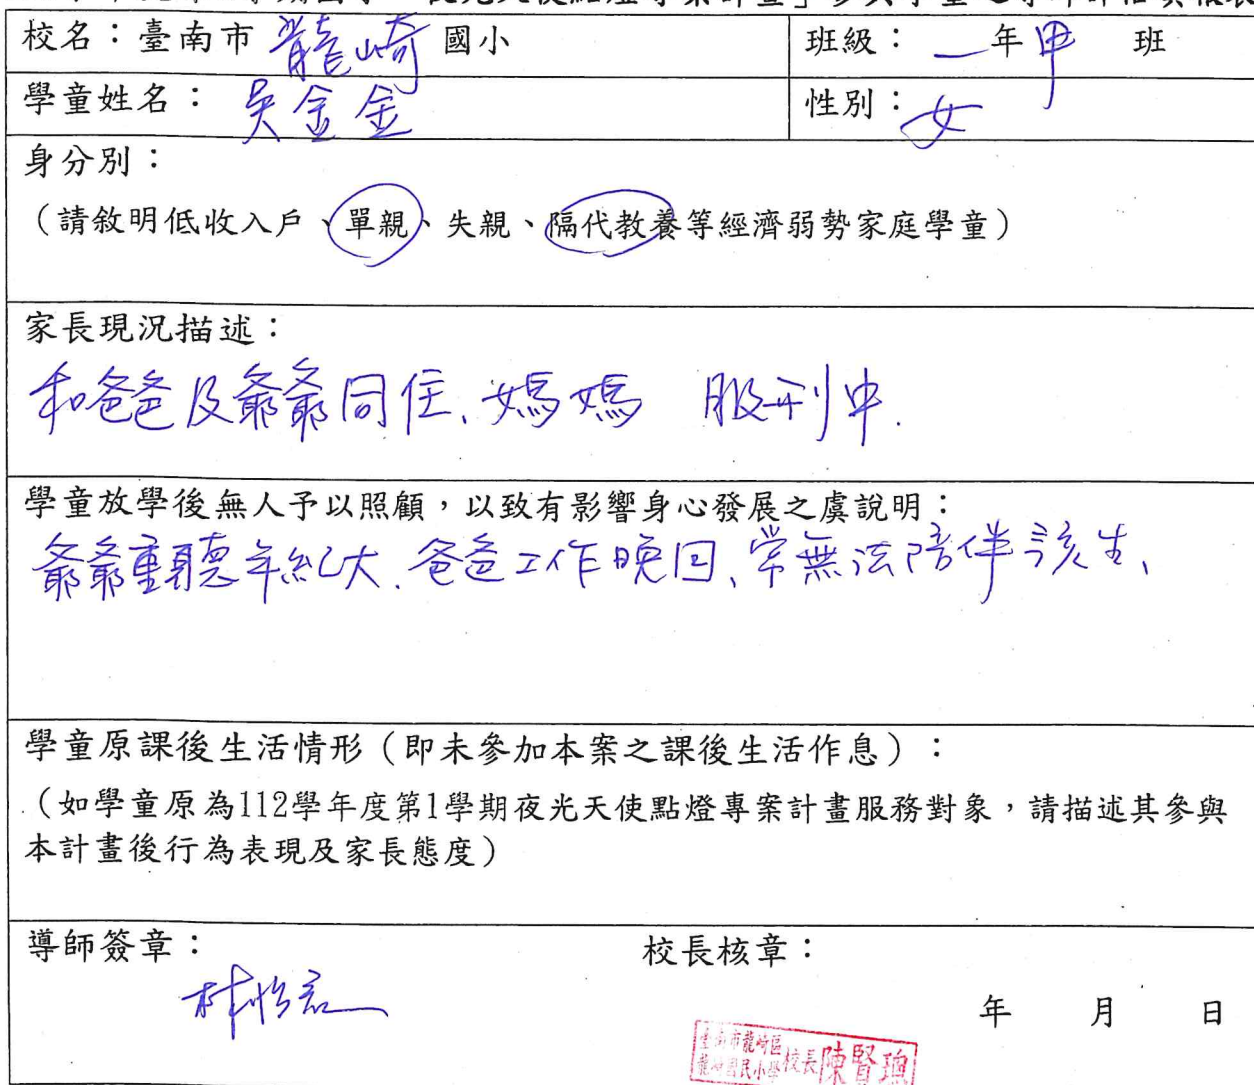 校名：臺南市 龍崎 國小 班級： 一年甲 班
學童姓名： 吳金金 性別：女
身分別：
（請敘明低收入戶、單親、失親、隔代教養等經濟弱勢家庭學童）
家長現況描述：
和爸爸及爺爺同住、媽媽 服刑中.
學童放學後無人予以照顧，以致有影響身心發展之虞說明：
爺爺重聽年紀大、爸爸工作晚回、常無法陪伴該生、
學童原課後生活情形（即未參加本案之課後生活作息）：
（如學童原為112學年度第1學期夜光天使點燈專案計畫服務對象，請描述其參與
本計畫後行為表現及家長態度）
導師簽章： 校長核章：
林怡
年 月 日
臺南市龍崎區
龍崎國民小學 校長 陳賢